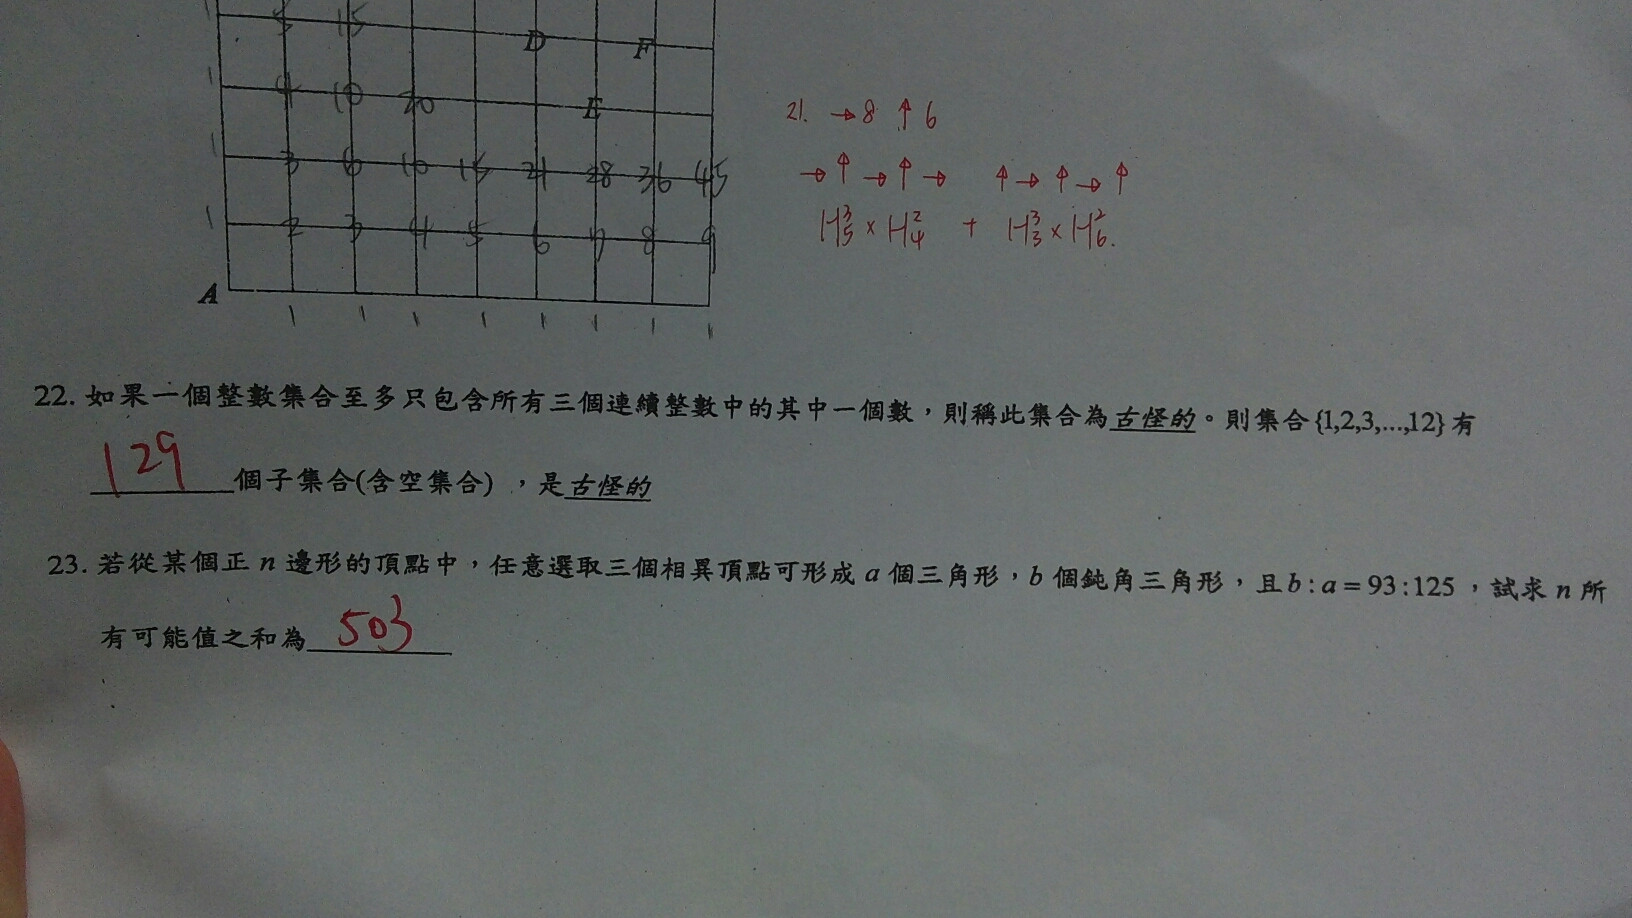 5 15
D F
1 4 10 20 E
1 3 6 10 15 21 28 36 45
1 2 3 4 5 6 7 8 9
A
1 1 1 1 1 1 1 1
21. →8 ↑6
→↑→↑→ ↑→↑→↑
H³₅×H²₄ + H³₃×H²₆.
22. 如果一個整數集合至多只包含所有三個連續整數中的其中一個數，則稱此集合為古怪的。則集合{1,2,3,...,12}有
129個子集合(含空集合)，是古怪的
23. 若從某個正n邊形的頂點中，任意選取三個相異頂點可形成a個三角形，b個鈍角三角形，且b:a=93:125，試求n所
有可能值之和為503